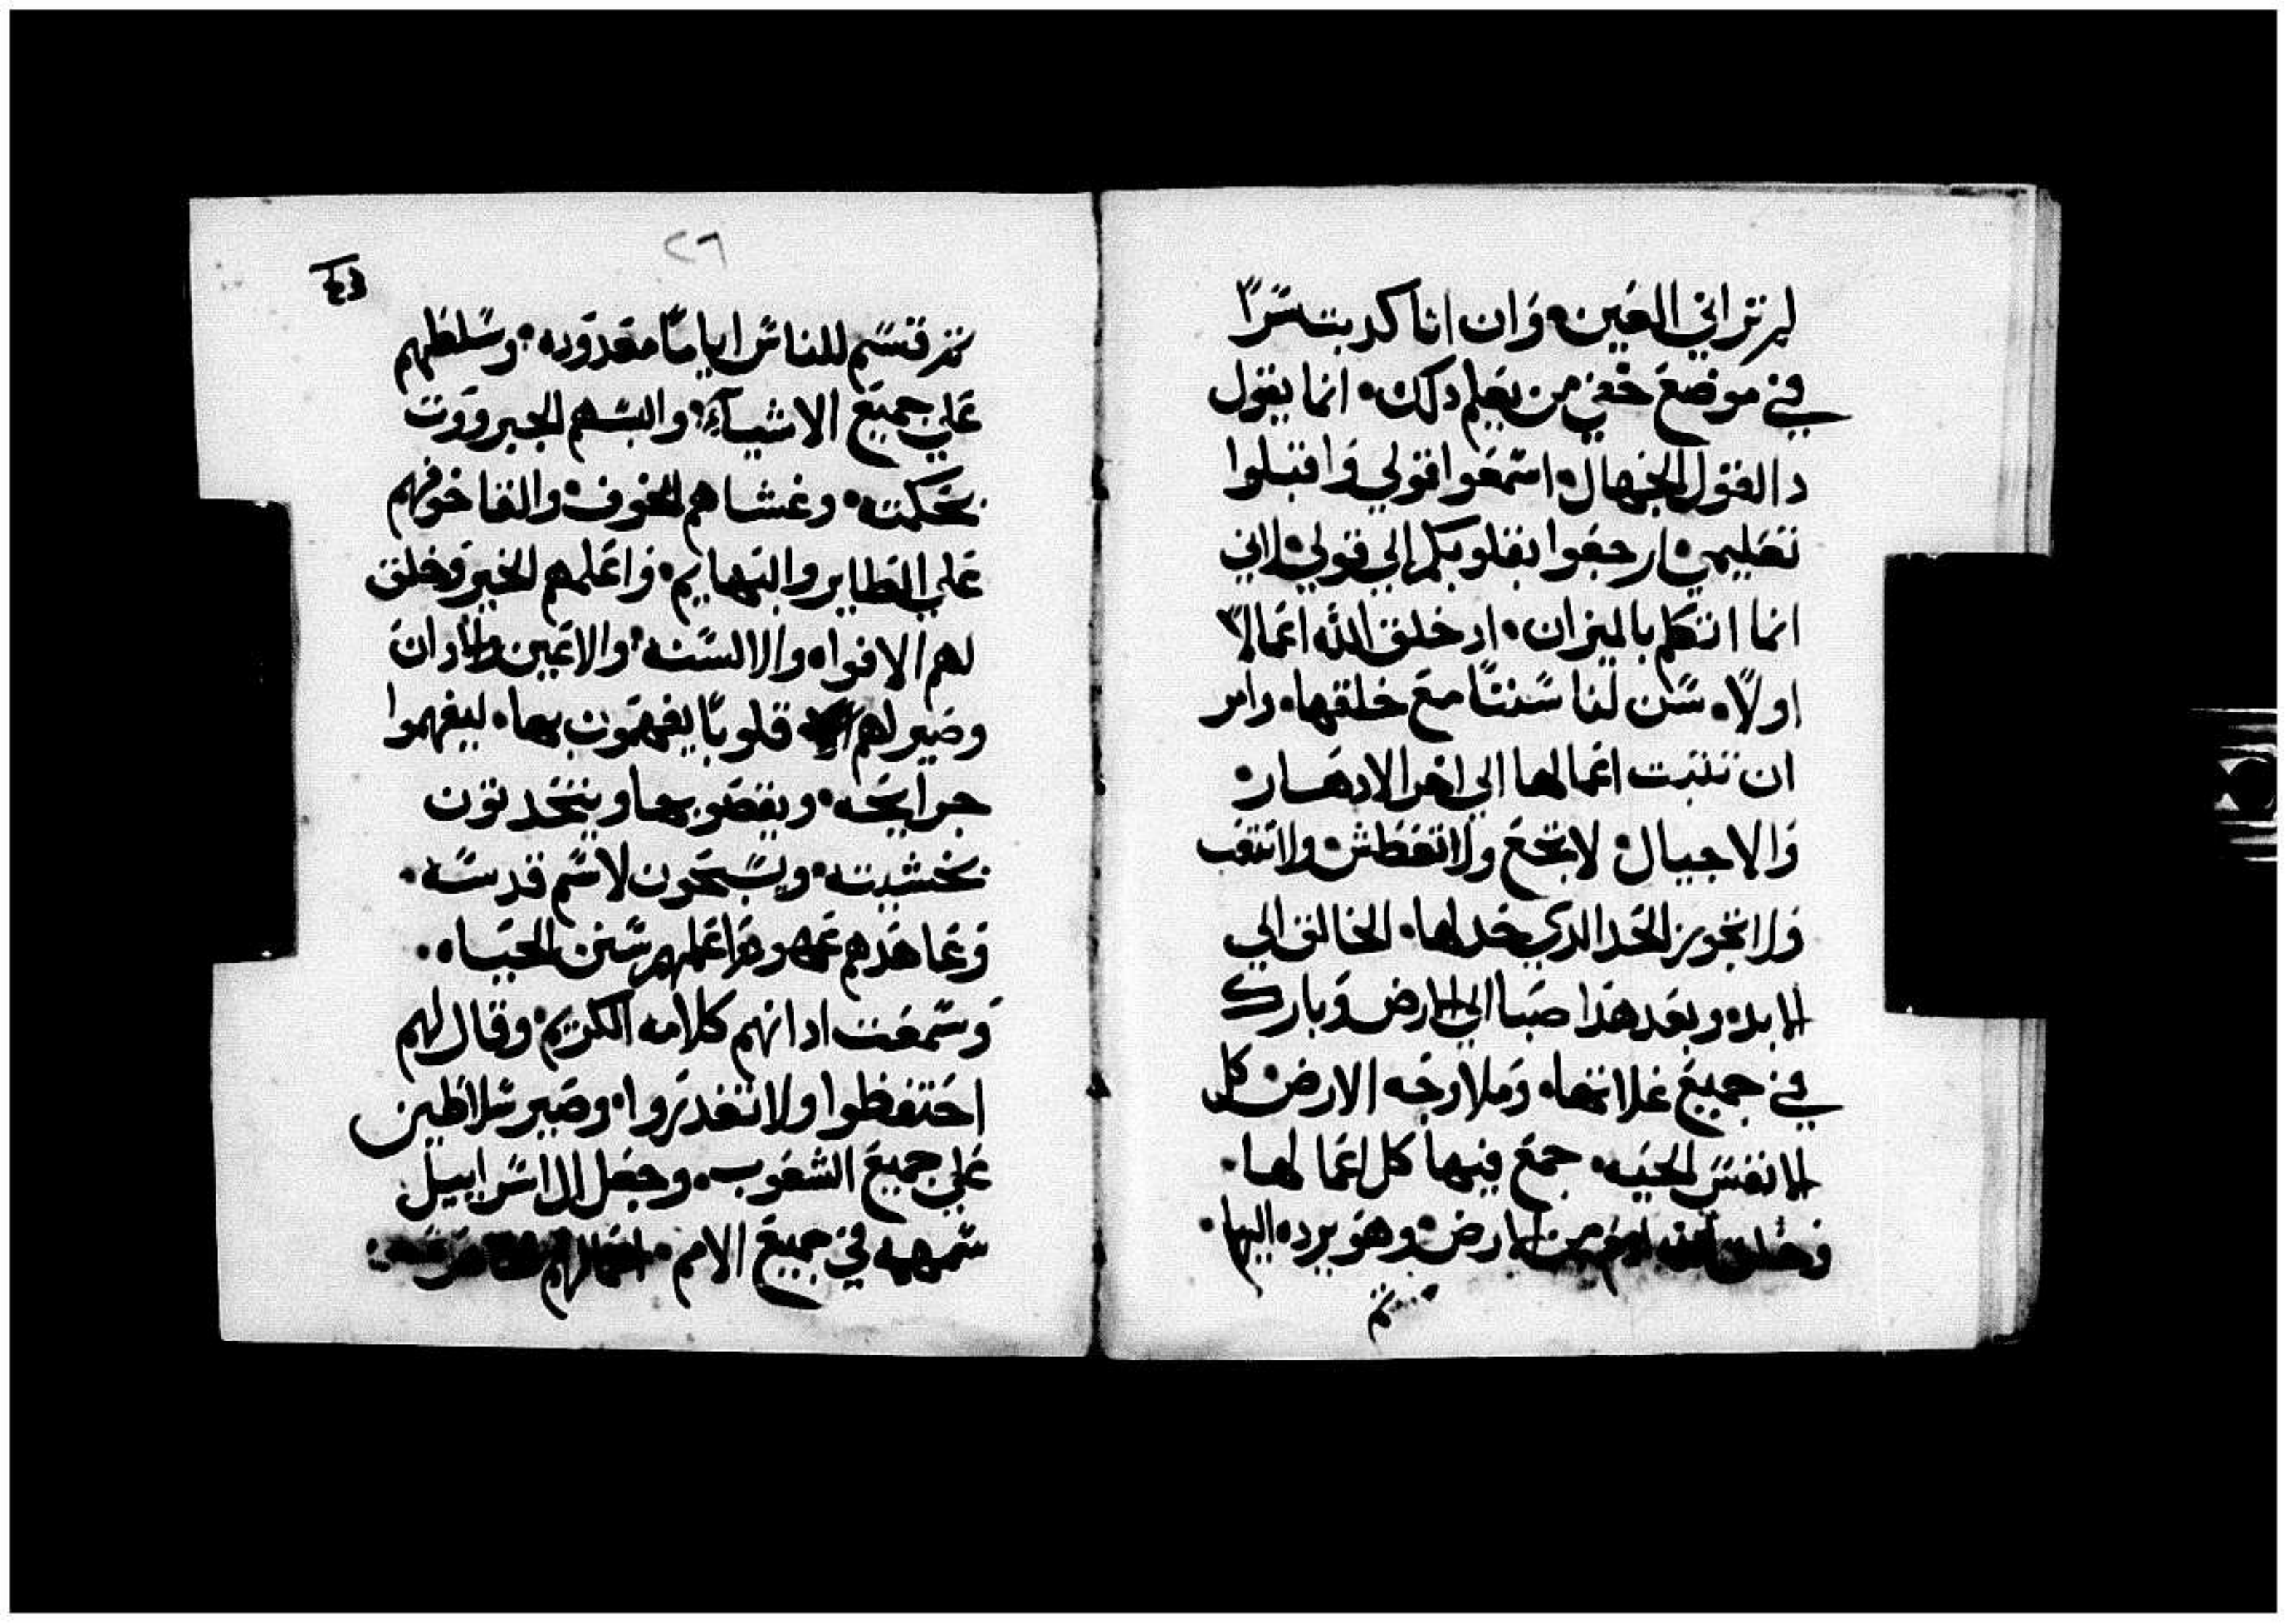 لم تراني العين، وان انا كدبت سرًا
في موضع خفي من يعلم دلك، انما يقول
دا القول الجهال، اسمعوا قولي واقبلوا
تعليمي، ارجعوا بقلوبكم الي قولي، لاني
انما اتكلم بالميزان، اد خلق الله اعمالاً
اولاً، سن لنا سننًا مع خلقها، وامر
ان تتبت اعمالها الي اخر الادهار،
والاجيال، لا تجع ولا تعطش، ولا تتعب
ولا تجوز الحد الدي حد لها، الخالق الي
الابد، وبعد هذا صبا الي الارض وبارك
في جميع غلاتها، وملا وجه الارض، كل
الانفس الحيه، جمع فيها كل اعمالها،
وخلق الله ادم من الارض، وهو يرده اليها،
تم
٢٦
ثم قسم للناس ايامًا معدوده، وسلطهم
علي جميع الاشياء، والبسهم الجبرووت
بحكمته، وغشاهم الخوف، والقا خوفهم
علي الطاير والبهايم، واعلمهم الخير وخلق
لهم الافواه والالسنه، والاعين والادان
وصير لهم قلوبًا يفهمون بها، ليفهموا
جرايحه، ويقصو بها ويتحدتون
بخشيته، ويسبحون لاسم قدسه،
وعاهدهم عهود واعلمهم سنن الحياه،
وسمعت ادانهم كلامه الكريم، وقال لهم
احتفظوا ولا تغدروا، وصير سلاطين
علي جميع الشعوب، وجعل ال اسراييل
سهمه في جميع الامم، اعمالهم